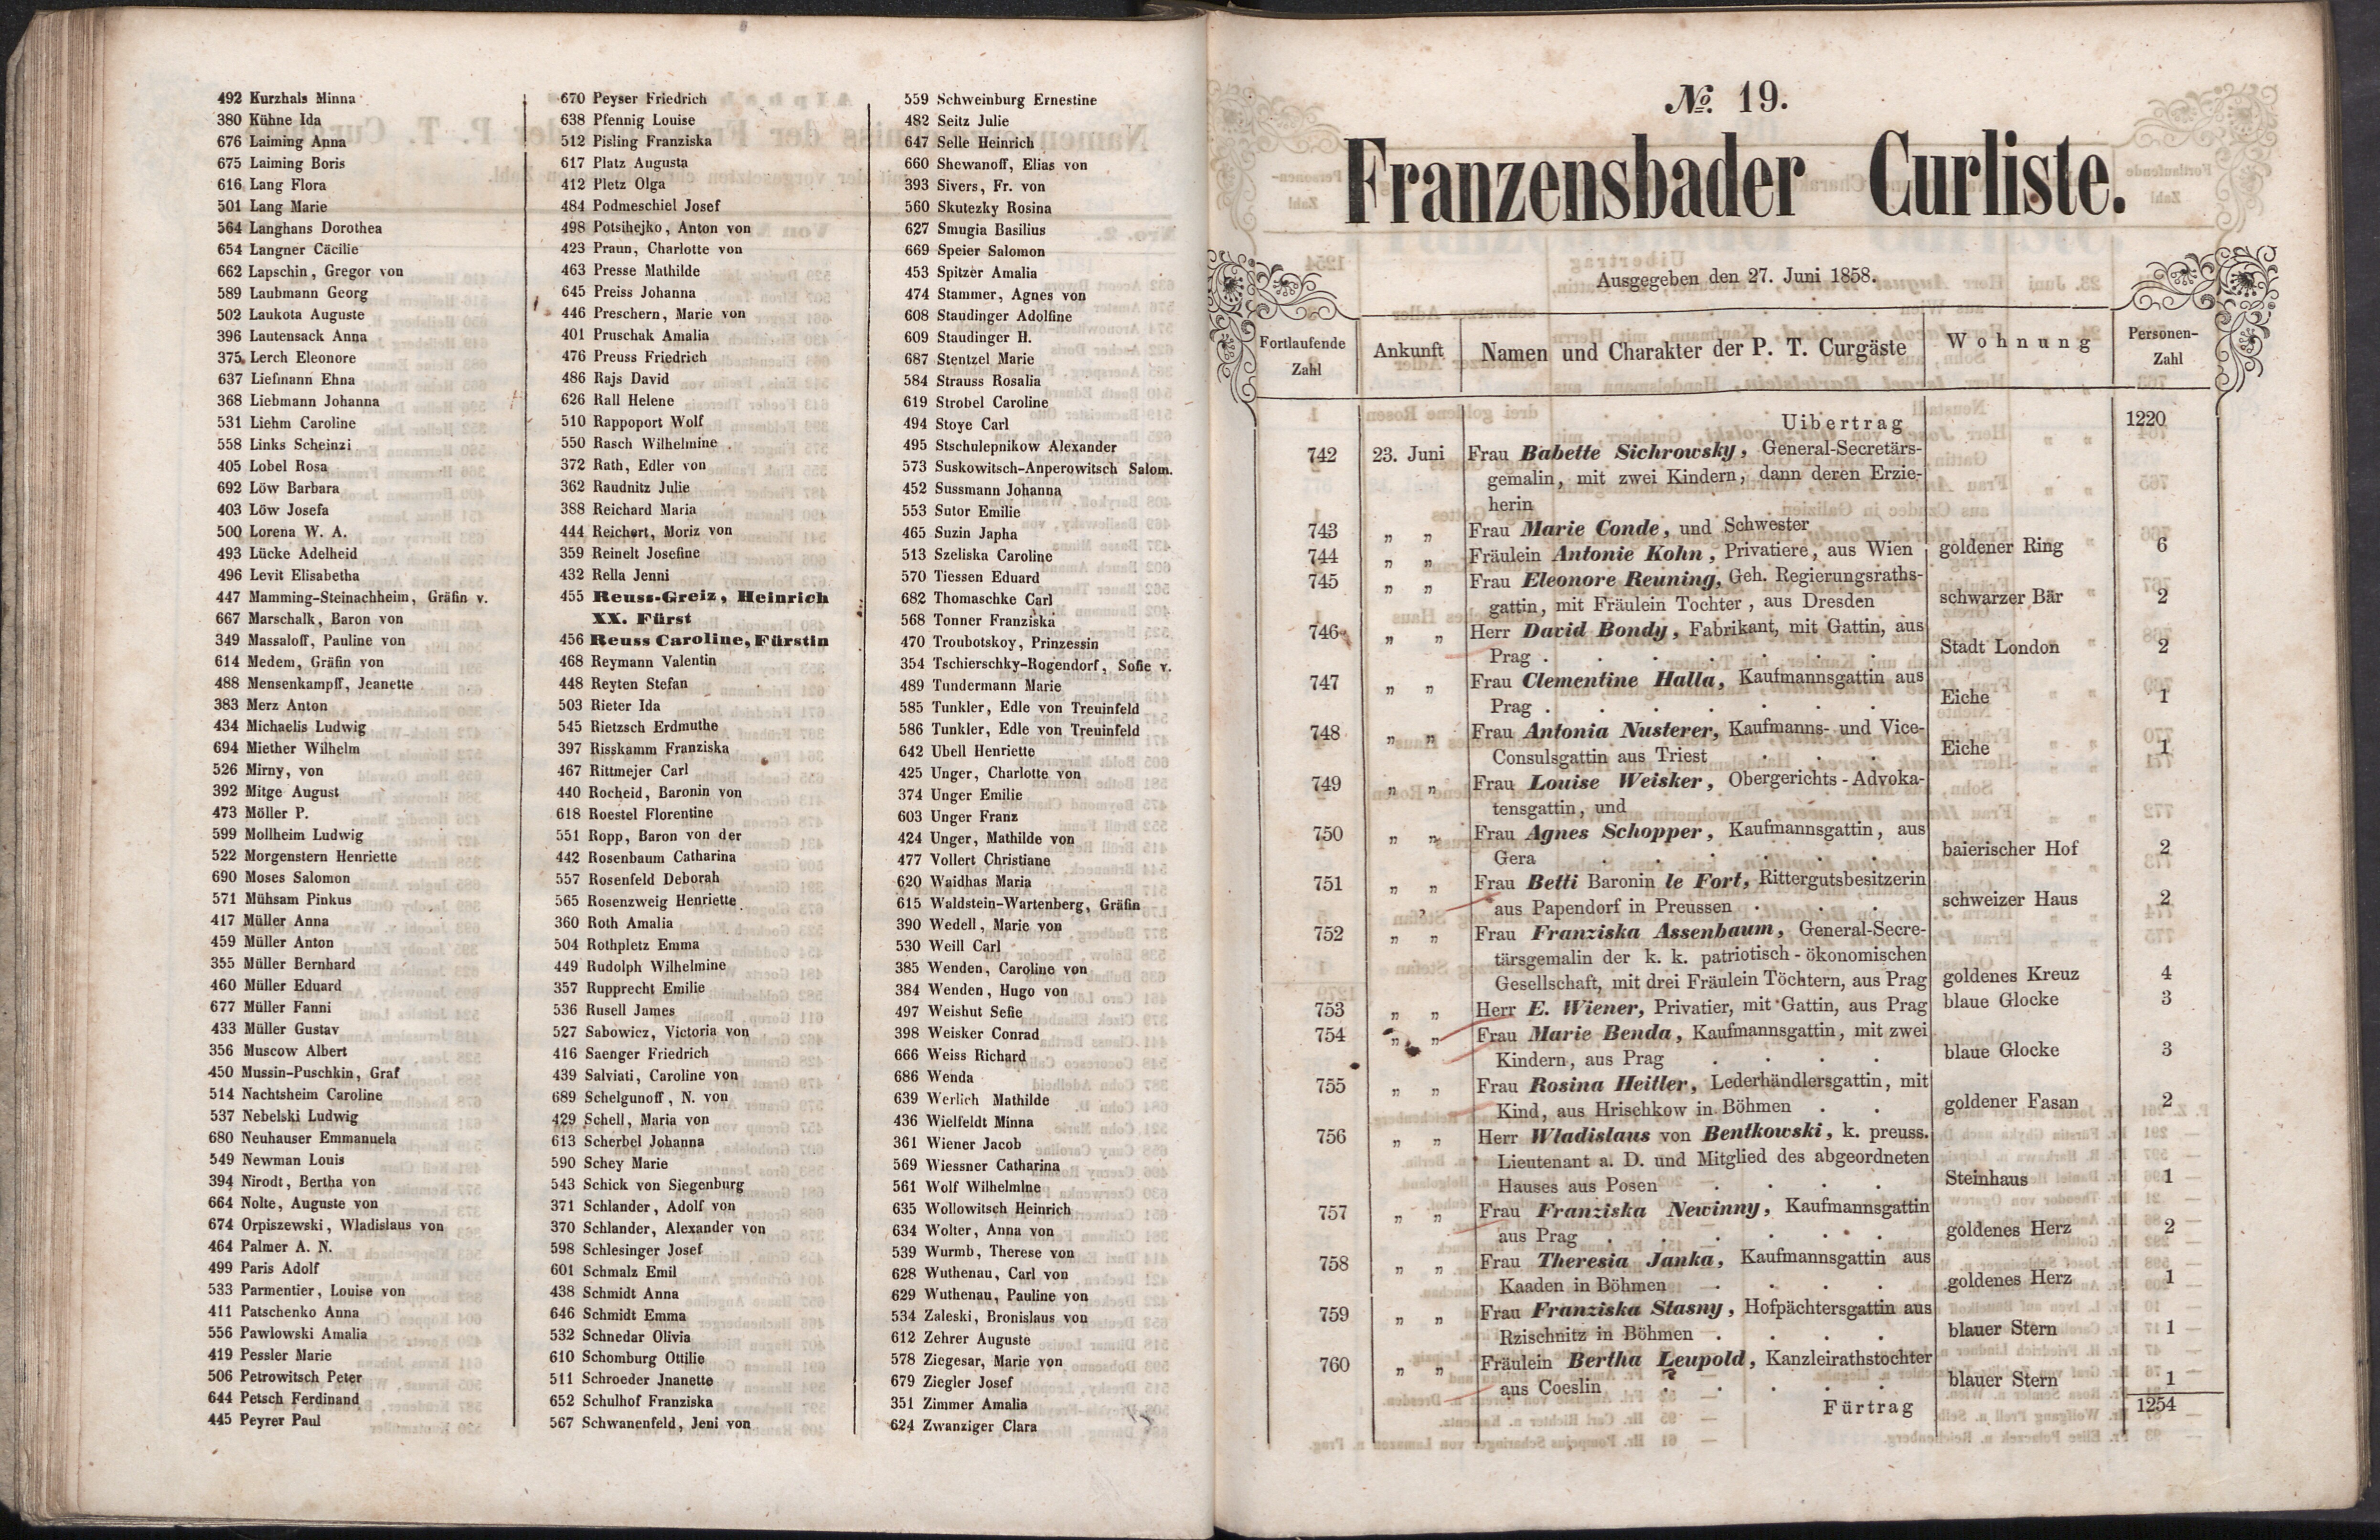 492 Kurzhals Minna
380 Kühne Ida
676 Laiming Anna
675 Laiming Boris
616 Lang Flora
501 Lang Marie
564 Langhans Dorothea
654 Langner Cäcilie
662 Lapschin, Gregor von
589 Laubmann Georg
502 Laukota Auguste
396 Lautensack Anna
375 Lerch Eleonore
637 Liefmann Ehna
368 Liebmann Johanna
531 Liehm Caroline
558 Links Scheinzi
405 Lobel Rosa
692 Löw Barbara
403 Löw Josefa
500 Lorena W. A.
493 Lücke Adelheid
496 Levit Elisabetha
447 Mamming-Steinachheim, Gräfin v.
667 Marschalk, Baron von
349 Massaloff, Pauline von
614 Medem, Gräfin von
488 Mensenkampff, Jeanette
383 Merz Anton
434 Michaelis Ludwig
694 Miether Wilhelm
526 Mirny, von
392 Mitge August
473 Möller P.
599 Mollheim Ludwig
522 Morgenstern Henriette
690 Moses Salomon
571 Mühsam Pinkus
417 Müller Anna
459 Müller Anton
355 Müller Bernhard
460 Müller Eduard
677 Müller Fanni
433 Müller Gustav
356 Muscow Albert
450 Mussin-Puschkin, Graf
514 Nachtsheim Caroline
537 Nebelski Ludwig
680 Neuhauser Emmanuela
549 Newman Louis
394 Nirodt, Bertha von
664 Nolte, Auguste von
674 Orpiszewski, Wladislaus von
464 Palmer A. N.
499 Paris Adolf
533 Parmentier, Louise von
411 Patschenko Anna
556 Pawlowski Amalia
419 Pessler Marie
506 Petrowitsch Peter
644 Petsch Ferdinand
445 Peyrer Paul
670 Peyser Friedrich
638 Pfennig Louise
512 Pisling Franziska
617 Platz Augusta
412 Pletz Olga
484 Podmeschiel Josef
498 Potsihejko, Anton von
423 Praun, Charlotte von
463 Presse Mathilde
645 Preiss Johanna
446 Preschern, Marie von
401 Pruschak Amalia
476 Preuss Friedrich
486 Rajs David
626 Rall Helene
510 Rappoport Wolf
550 Rasch Wilhelmine
372 Rath, Edler von
362 Raudnitz Julie
388 Reichard Maria
444 Reichert, Moriz von
359 Reinelt Josefine
432 Rella Jenni
455 Reuss-Greiz, Heinrich
XX. Fürst
456 Reuss Caroline, Fürstin
468 Reymann Valentin
448 Reyten Stefan
503 Rieter Ida
545 Rietzsch Erdmuthe
397 Risskamm Franziska
467 Rittmejer Carl
440 Rocheid, Baronin von
618 Roestel Florentine
551 Ropp, Baron von der
442 Rosenbaum Catharina
557 Rosenfeld Deborah
565 Rosenzweig Henriette
360 Roth Amalia
504 Rothpletz Emma
449 Rudolph Wilhelmine
357 Rupprecht Emilie
536 Rusell James
527 Sabowicz, Victoria von
416 Saenger Friedrich
439 Salviati, Caroline von
689 Schelgunoff, N. von
429 Schell, Maria von
613 Scherbel Johanna
590 Schey Marie
543 Schick von Siegenburg
371 Schlander, Adolf von
370 Schlander, Alexander von
598 Schlesinger Josef
601 Schmalz Emil
438 Schmidt Anna
646 Schmidt Emma
532 Schnedar Olivia
610 Schomburg Ottilie
511 Schroeder Jnanette
652 Schulhof Franziska
567 Schwanenfeld, Jeni von
559 Schweinburg Ernestine
482 Seitz Julie
647 Selle Heinrich
660 Shewanoff, Elias von
393 Sivers, Fr. von
560 Skutezky Rosina
627 Smugia Basilius
669 Speier Salomon
453 Spitzer Amalia
474 Stammer, Agnes von
608 Staudinger Adolfine
609 Staudinger H.
687 Stentzel Marie
584 Strauss Rosalia
619 Strobel Caroline
494 Stoye Carl
495 Stschulepnikow Alexander
573 Suskowitsch-Anperowitsch Salom.
452 Sussmann Johanna
553 Sutor Emilie
465 Suzin Japha
513 Szeliska Caroline
570 Tiessen Eduard
682 Thomaschke Carl
568 Tonner Franziska
470 Troubotskoy, Prinzessin
354 Tschierschky-Rogendorf, Sofie v.
489 Tundermann Marie
585 Tunkler, Edle von Treuinfeld
586 Tunkler, Edle von Treuinfeld
642 Ubell Henriette
425 Unger, Charlotte von
374 Unger Emilie
603 Unger Franz
424 Unger, Mathilde von
477 Vollert Christiane
620 Waidhas Maria
615 Waldstein-Wartenberg, Gräfin
390 Wedell, Marie von
530 Weill Carl
385 Wenden, Caroline von
384 Wenden, Hugo von
497 Weishut Sefie
398 Weisker Conrad
666 Weiss Richard
686 Wenda
639 Werlich Mathilde
436 Wielfeldt Minna
361 Wiener Jacob
569 Wiessner Catharina
561 Wolf Wilhelmine
635 Wollowitsch Heinrich
634 Wolter, Anna von
539 Wurmb, Therese von
628 Wuthenau, Carl von
629 Wuthenau, Pauline von
534 Zaleski, Bronislaus von
612 Zehrer Auguste
578 Ziegesar, Marie von
679 Ziegler Josef
351 Zimmer Amalia
624 Zwanziger Clara
No. 19.
Franzensbader Curliste.
Ausgegeben den 27. Juni 1858.
Fortlaufende Zahl | Ankunft | Namen und Charakter der P. T. Curgäste | Wohnung | Personen-Zahl
Uibertrag 1220
742 23. Juni Frau Babette Sichrowsky, General-Secretärs-
gemalin, mit zwei Kindern, dann deren Erzie-
herin
743 „ „ Frau Marie Conde, und Schwester
744 „ „ Fräulein Antonie Kohn, Privatiere, aus Wien goldener Ring 6
745 „ „ Frau Eleonore Reuning, Geh. Regierungsraths-
gattin, mit Fräulein Tochter, aus Dresden schwarzer Bär 2
746 „ „ Herr David Bondy, Fabrikant, mit Gattin, aus
Prag . . . . . . . Stadt London 2
747 „ „ Frau Clementine Halla, Kaufmannsgattin aus
Prag . . . . . . . Eiche 1
748 „ „ Frau Antonia Nusterer, Kaufmanns- und Vice-
Consulsgattin aus Triest . . . Eiche 1
749 „ „ Frau Louise Weisker, Obergerichts-Advoka-
tensgattin, und
750 „ „ Frau Agnes Schopper, Kaufmannsgattin, aus
Gera . . . . . . baierischer Hof 2
751 „ „ Frau Betti Baronin le Fort, Rittergutsbesitzerin
aus Papendorf in Preussen . . . schweizer Haus 2
752 „ „ Frau Franziska Assenbaum, General-Secre-
tärsgemalin der k. k. patriotisch-ökonomischen
Gesellschaft, mit drei Fräulein Töchtern, aus Prag goldenes Kreuz 4
753 „ „ Herr E. Wiener, Privatier, mit Gattin, aus Prag blaue Glocke 3
754 „ „ Frau Marie Benda, Kaufmannsgattin, mit zwei
Kindern, aus Prag . . . . blaue Glocke 3
755 „ „ Frau Rosina Heitler, Lederhändlersgattin, mit
Kind, aus Hrischkow in Böhmen . . goldener Fasan 2
756 „ „ Herr Wladislaus von Bentkowski, k. preuss.
Lieutenant a. D. und Mitglied des abgeordneten
Hauses aus Posen . . . . Steinhaus 1
757 „ „ Frau Franziska Newinny, Kaufmannsgattin
aus Prag . . . . . . goldenes Herz 2
758 „ „ Frau Theresia Janka, Kaufmannsgattin aus
Kaaden in Böhmen . . . . goldenes Herz 1
759 „ „ Frau Franziska Stasny, Hofpächtersgattin aus
Rzischnitz in Böhmen . . . . blauer Stern 1
760 „ „ Fräulein Bertha Leupold, Kanzleirathstochter
aus Coeslin . . . . . blauer Stern 1
Fürtrag 1254